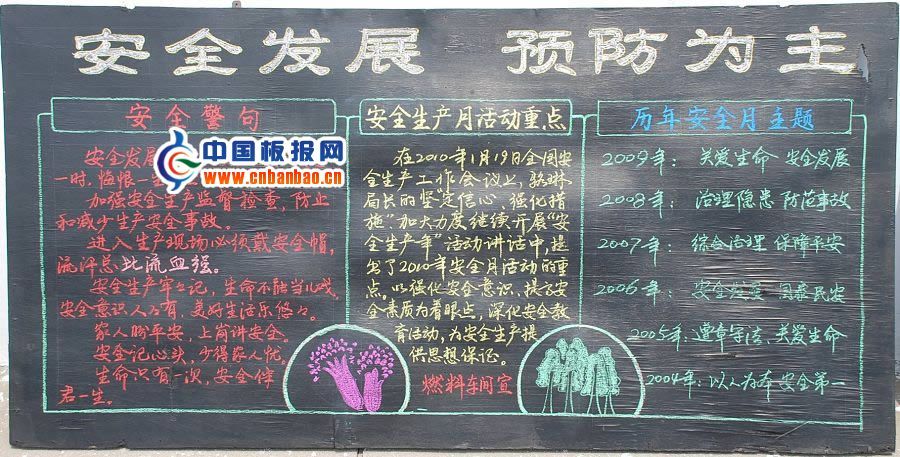 安全发展 预防为主
安全警句
安全发展
一时，悔恨一
加强安全生产监督检查，防止
和减少生产安全事故。
进入生产现场必须戴安全帽，
流汗总比流血强。
安全生产牢牢记，生命不能当儿戏
安全意识人人有，美好生活乐悠々。
家人盼平安，上岗讲安全。
安全记心头，少得家人忧。
生命只有一次，安全伴
君一生。
中国板报网
www.cnbanbao.cn
安全生产月活动重点
在2010年1月19日全国安
全生产工作会议上，骆琳
局长的坚“定信心、强化措
施”加大力度继续开展“安
全生产年”活动讲话中，提
出了2010年安全月活动的重
点。以强化安全意识、提高安
全素质为着眼点，深化安全教
育活动，为安全生产提
供思想保证。
燃料车间宣
历年安全月主题
2009年：关爱生命 安全发展
2008年：治理隐患 防范事故
2007年：综合治理 保障平安
2006年：安全发展 国泰民安
2005年：遵章守法、关爱生命
2004年：以人为本 安全第一